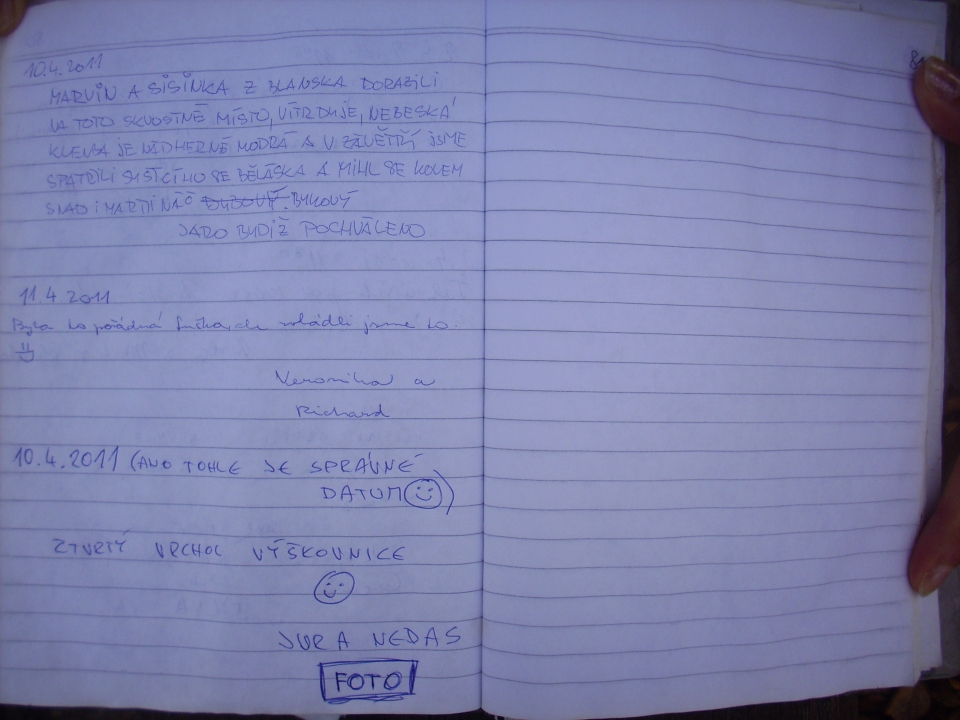 10.4.2011
MARVIN A SISINKA Z BLANSKA DORAZILI
NA TOTO SKVOSTNÉ MÍSTO, VÍTR DUJE, NEBESKÁ
KLENBA JE NÁDHERNĚ MODRÁ A V ZÁVĚTŘÍ JSME
SPATŘILI SE BĚLÁSKA A MIHL SE KOLEM
SNAD I MARTINÁČ BUKOVÝ
JARO BUDIŽ POCHVÁLENO
11.4 2011
Byla to pořádná fuška, ale zvládli jsme to
Veronika a
Richard
10.4.2011 (ANO TOHLE JE SPRÁVNÉ
DATUM)
ČTVRTÝ VRCHOL VÝŠKOVNICE
JURA NEDAS
FOTO
81